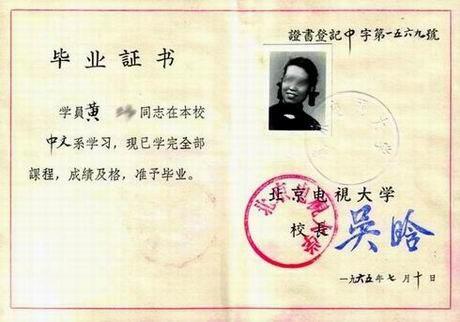 毕业証书
学員黄 同志在本校
中文系学习，现已学完全部
課程，成績及格，准予毕业。
證書登記中字第一五六九號
北京电視大学
校長 吳晗
一九六五年七月十日